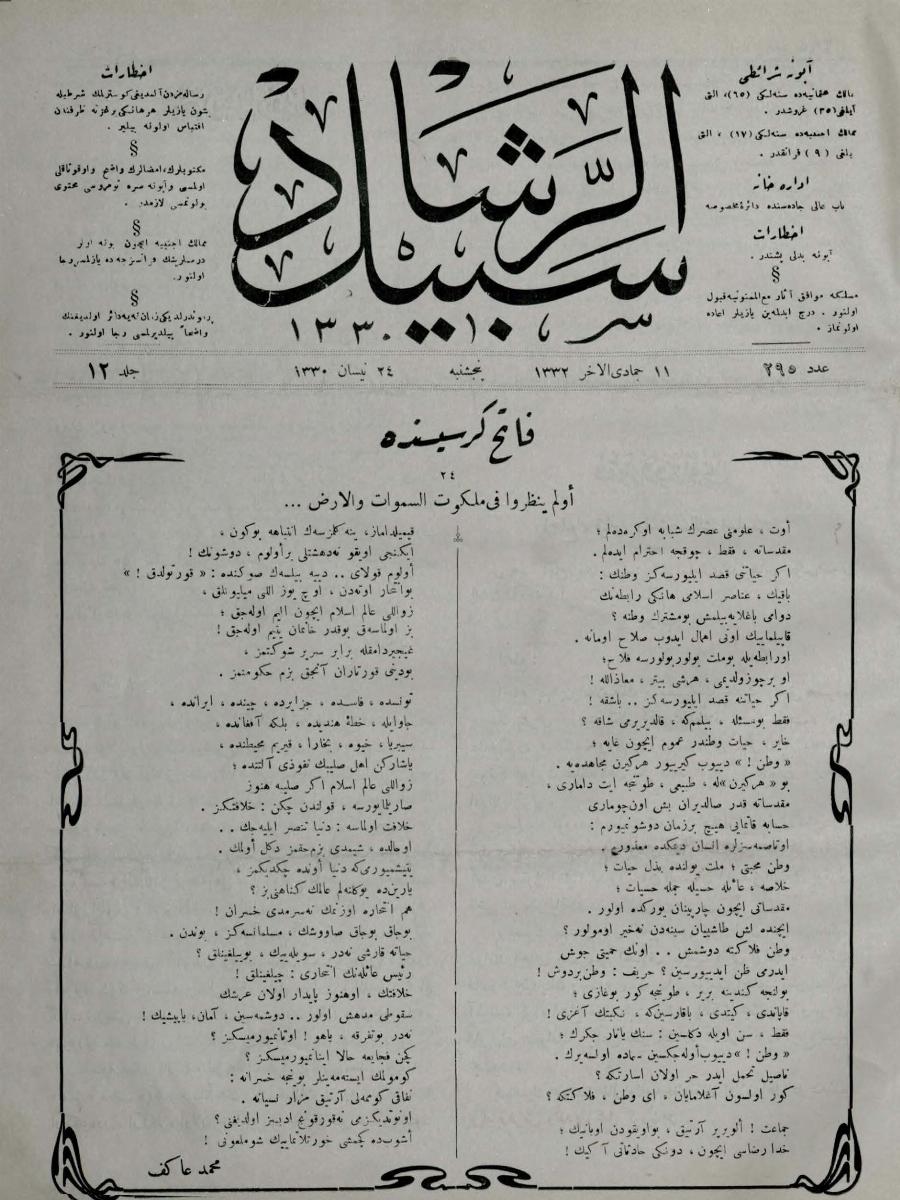 آبونه شرائطی
ممالك عثمانیه‌ده سنه‌لكی (٦٥)، التی
آیلغی (٣٥) غروشدر .
ممالك اجنبیه‌ده سنه‌لكی (١٧) ، التی
یلغی ( ٩ ) فرانقدر .
اداره خانه
باب عالی جاده‌سنده دائرهٔ مخصوصه
اخطارات
آبونه بدلی پشندر .
§
مسلكه موافق آثار مع الممنونیه قبول
اولنور . درج ایدلمه‌ین یازیلر اعاده
اولنماز .
سبیل الرشاد
سر ١٣٣٠
اخطارات
رساله‌مزدن آلندیغی كوسترلمك شرطیله
بتون یازیلر هر هانكی بر غزته طرفندن
اقتباس اولونه بیلیر .
§
مكتوبلرك، امضالرك واضح واوقوناقلی
اولمسی وآبونه صره نومروسی محتوی
بولونمسی لازمدر .
§
ممالك اجنبیه ایچون آبونه اولنلر
آدرسلرینك فرانسزجه‌ده یازلمسی رجا
اولنور.
§
پاره كوندرلدیكی زمان نه‌یه دائر اولدیغنك
واضحاً بیلدیرلمسی رجا اولنور .
عدد ٢٩٥
١١ جمادی الآخر ١٣٣٢
پنجشنبه
٢٤ نیسان ١٣٣٠
جلد ١٢
فاتح كرسیسنده
٢٤
أولم ینظروا فی ملكوت السموات والارض ...
أوت ، علومنی عصرك شبابه اوكره‌ده‌لم ؛
مقدساته ، فقط ، چوقجه احترام ایده‌لم .
اكر حیاتنی قصد ایلیورسه‌كز وطنك :
باقیك ، عناصر اسلامی هانكی رابطه‌نك
دوامی باغلایه‌بیلمش بومشترك وطنه ؟
قاپیلماییك اونی اهمال ایدوب صلاح اومانه .
اورابطه‌یله بوملت بولور بولورسه فلاح؛
او بر چوزولدیمی ، هرشی بیتر ، معاذالله !
اكر حیاتنه قصد ایلیورسه‌كز .. باشقه !
فقط بوسئله ، بیلمم‌كه ، قالدیریرمی شاقه ؟
خایر ، حیات وطندر عموم ایچون غایه ؛
« وطن ! » دییوب كیرییور هركیرن مجاهده‌یه .
بو « هركیرن»له ، طبیعی ، طوتنجه ایت دامارى ،
مقدساته قدر صالدیران بش اون‌چوماری
حسابه قاتمایی هیچ برزمان دوشونمیورم :
اوتاصمه‌سزلره انسان دیمكده معذورم .
وطن محبتی ؛ ملت یولنده بذل حیات ؛
خلاصه ، عائله حسیله جمله حسیات ؛
مقدساتی ایچون چارپینان یوركده اولور .
ایچنده لش طاشییان سینه‌دن نه‌خیر اومولور ؟
وطن فلاكته دوشمش .. اونك حمیتی جوش
ایدرمی ظن ایدییورسین ؟ حریف : وطن‌بردوش !
بولنجه كندینه بریر ، طوینجه كور بوغازی ؛
قاپاندی ، كیتدی ، باقارسین‌كه ، نكبتك آغزی !
فقط ، سن اویله دكلسین : سنك یانار جكرك ؛
« وطن ! »دییوب‌أوله‌جكسین سهاده اولسه‌یرك .
ناصیل تحمل ایدر حر اولان اسارتكه ؟
كور اولسون آغلامایان ، ای وطن ، فلاكتكه ؟
جماعت ! ألویریر آرتیق ، بواویقودن اویانیك ؛
خدا رضاسی ایچون ، دونكی حادثاتی آكیك !
قیمیلداماز، ینه كلزسه‌ك انتباهه بوكون ،
ایكنجی اویقو نه‌دهشتلی برأولوم ، دوشونك !
أولوم قولای .. دییه بیلسه‌ك صوكنده : « قورتولدق ! »
بوانتحار اوته‌دن ، اوچ یوز اللی میلیونلق ،
زواللی عالم اسلام ایچون الیم اوله‌جق ؛
بز اولماسه‌ق بوقدر خانمان یتیم اوله‌جق !
غیجیردامقله برابر سریر شوكتمز ،
بودینی قورتاران آنجق بزم حكومتمز .
تونسده ، فاسده ، جزایرده ، چینده ، ایرانده ،
جاوایله ، خطهٔ هندیده ، بلكه آفغانده ،
سیبریا ، خیوه ، بخارا ، قیریم محیطنده ،
یاشاركن اهل صلیبك نفوذی آلتنده ؛
زواللی عالم اسلام اكر صلیبه هنوز
صاریلمایورسه ، قولندن چكن : خلافتكز .
خلافت اولماسه : دنیا تنصر ایلیه‌جك . .
اوحالده ، شیمدی بزم‌حقمز دكل أولمك .
یتیشمیورمی‌كه دنیا أونده چكدیكمز ،
یارین‌ده یوكلنه‌لم عالمك كناهنی‌بز ؟
هم انتحاره اوزنمك نه‌سرمدی خسران !
بوجاق بوجاق صاووشك ، مسلمانسه‌كز ، بوندن .
حیاته قارشی نه‌در ، سویله‌ییك ، بوییلغینلق ؟
رئیس عائله‌نك انتحاری : چیلغینلق !
خلافتك ، اوهنوز پایدار اولان عرشك
سقوطی مدهش اولور .. دوشمه‌سین ، آمان، یاپیشیك !
نه‌در بوتفرقه ، یاهو ! اوتانمیورمیسكز ؟
كچن فجایعه حالا اینانمیورمیسكز ؟
كومولمك ایسته‌مه‌ینلر بونجه خسرانه :
نفاقی كوممه‌لی آرتیق مزار نسیانه .
اونوتدیكزمی نه‌قورقونج ادبسز اولدیغنی ؟
آشوب‌ده یكمشی خورتلاتماییك شوملعونی !
محمد عاكف